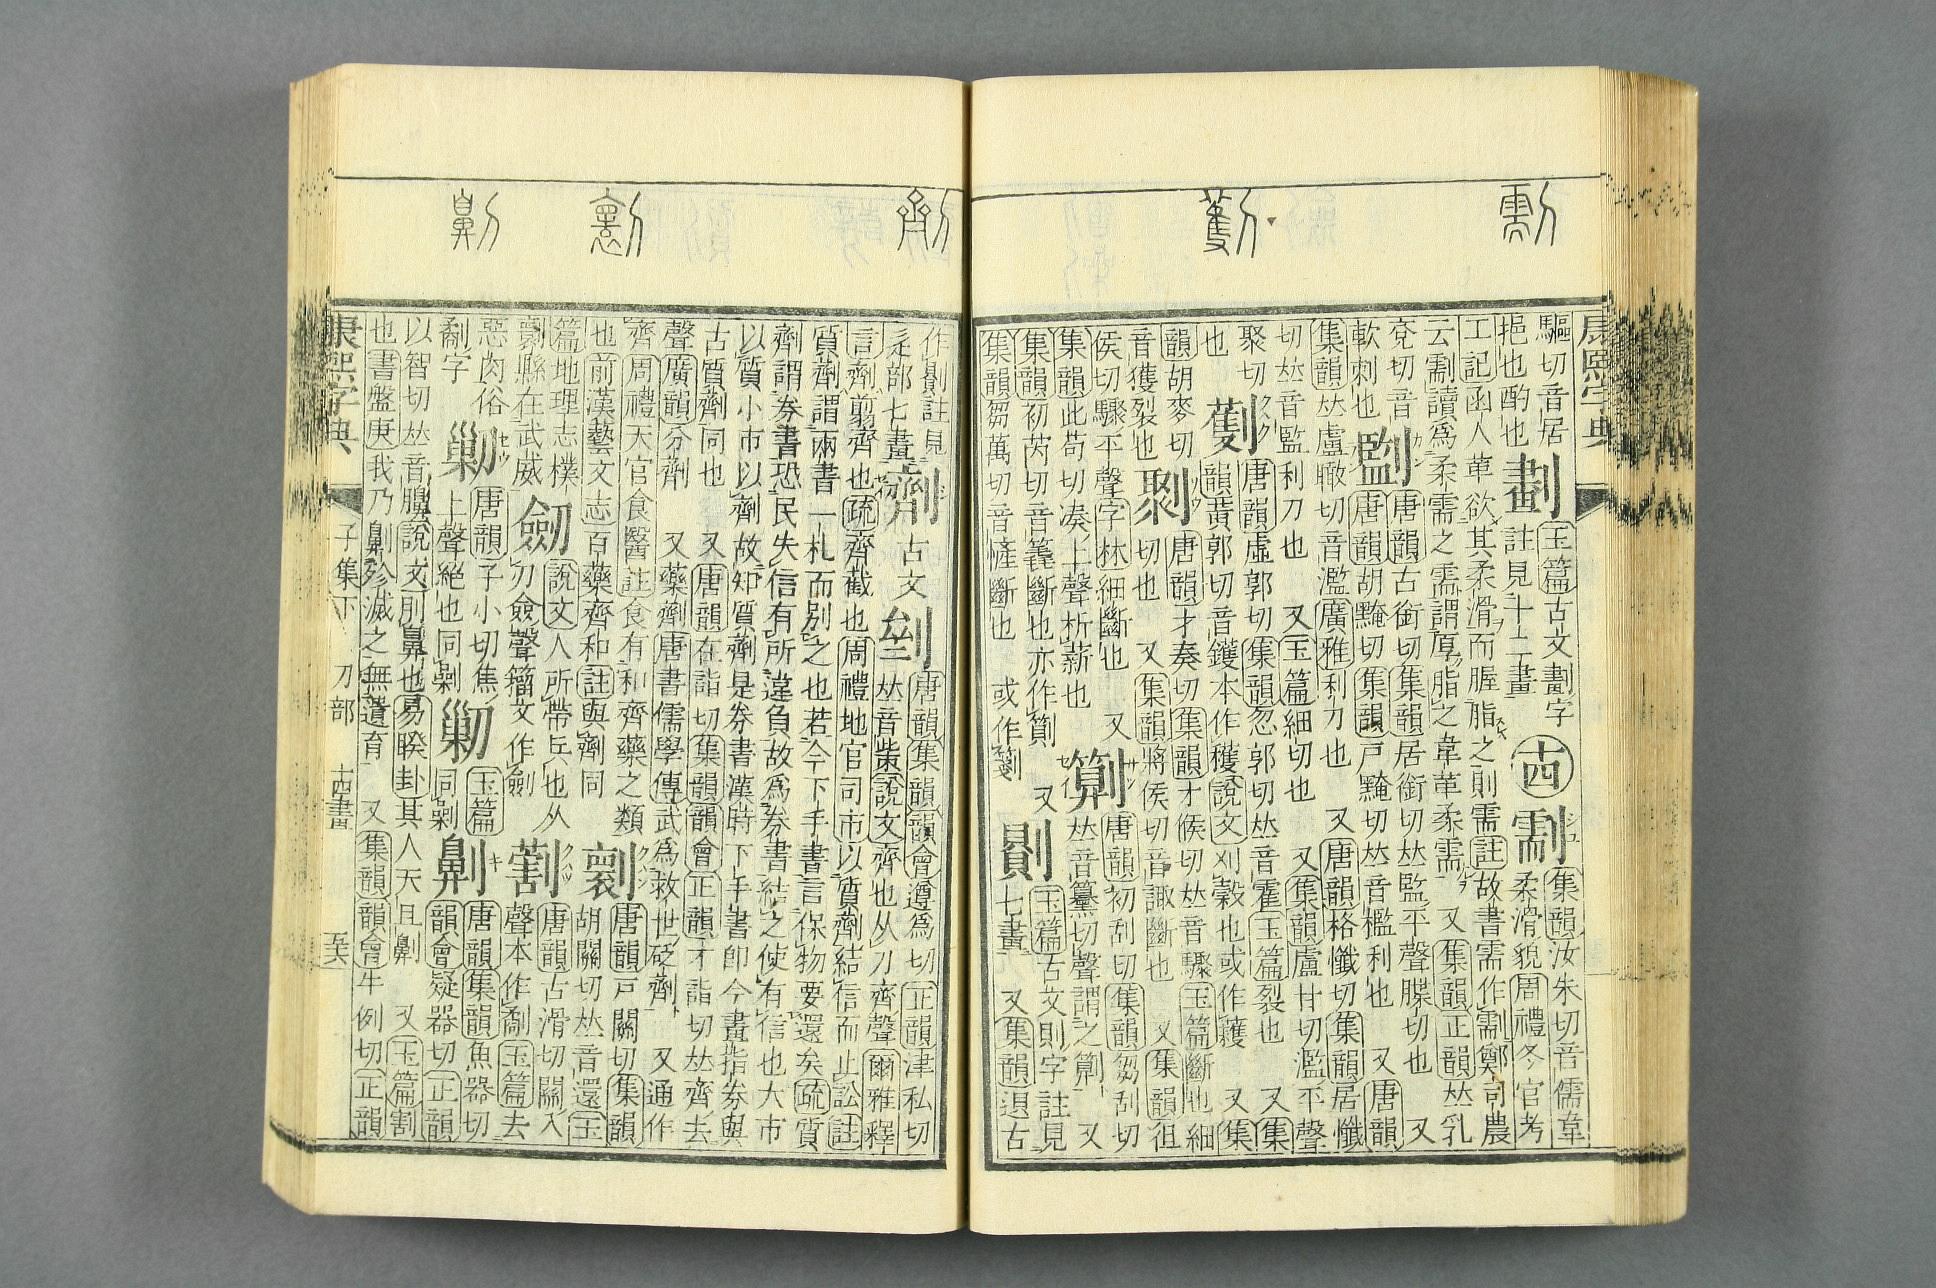 康熙字典
驅切音居 劃 玉篇古文劃字 十四 𠟺 集韻汝朱切音儒韋
挹也酌也 註見十二畫 柔滑貌周禮冬官考
工記函人革欲其柔滑而腥脂之則需註故書需作𠟺鄭司農
云𠟺讀爲柔需之需謂厚脂之韋革柔需 又集韻正韻𠀤乳
兗切音 㔋 唐韻古銜切集韻居銜切𠀤監平聲𦢖切也 又
軟刺也 唐韻胡黤切集韻戸黤切𠀤音檻利也 又唐韻
集韻𠀤盧瞰切音濫廣雅利刀也 又唐韻格懺切集韻居懺
切𠀤音監利刀也 又玉篇細切也 又集韻盧甘切濫平聲
聚切 㔉 唐韻虛郭切集韻忽郭切𠀤音霍玉篇裂也 又集
也 韻黃郭切音鑊本作穫說文刈穀也或作䕶 又集
韻胡麥切 㔌 唐韻才奏切集韻才候切𠀤音驟玉篇斷也細
音獲裂也 切也 又集韻將侯切音諏斷也 又集韻徂
侯切驟平聲字林細斷也 又 劗 唐韻初刮切集韻芻刮切
集韻此苟切凑上聲析薪也 𠀤音纂切聲謂之 又
集韻初芮切音毳斷也亦作 又 𠟻 玉篇古文則字註見
集韻芻萬切音㦃斷也 或作 七畫 又集韻退古
作㔍註見 劑 古文 㘸 唐韻集韻韻會遵爲切正韻津私切
辵部七畫 𠀤音觜說文齊也从刀齊聲爾雅釋
言劑翦齊也疏齊截也周禮地官司市以質劑結信而止訟註
質劑謂兩書一札而別之也若今下手書言保物要還矣疏質
劑謂券書恐民失信有所違負故爲券書結之使有信也大市
以質小市以劑故知質劑是券書漢時下手書卽今畫指券與
古質劑同也 又唐韻在詣切集韻韻會正韻才詣切𠀤齊去
聲廣韻分劑 又藥劑唐書儒學傳武爲救世砭劑 又通作
齊周禮天官食醫註食有和齊藥之類 㔋 唐韻戸關切集韻
也前漢藝文志百藥齊和註與劑同 胡關切𠀤音還玉
篇地理志樸 劒 說文人所帶兵也从 㔎 唐韻古滑切關入
㔋縣在武威 刃僉聲籀文作劍 聲本作劀玉篇去
惡肉俗 劋 唐韻子小切焦 𠠀 玉篇 劓 唐韻集韻魚器切
劀字 上聲絕也同剿 同剿 韻會疑器切正韻
以智切𠀤音臲說文刖鼻也易睽卦其人天且劓 又玉篇割
也書盤庚我乃劓殄滅之無遺育 又集韻韻會牛例切正韻
康熙字典 子集下 刀部 十四畫 五六